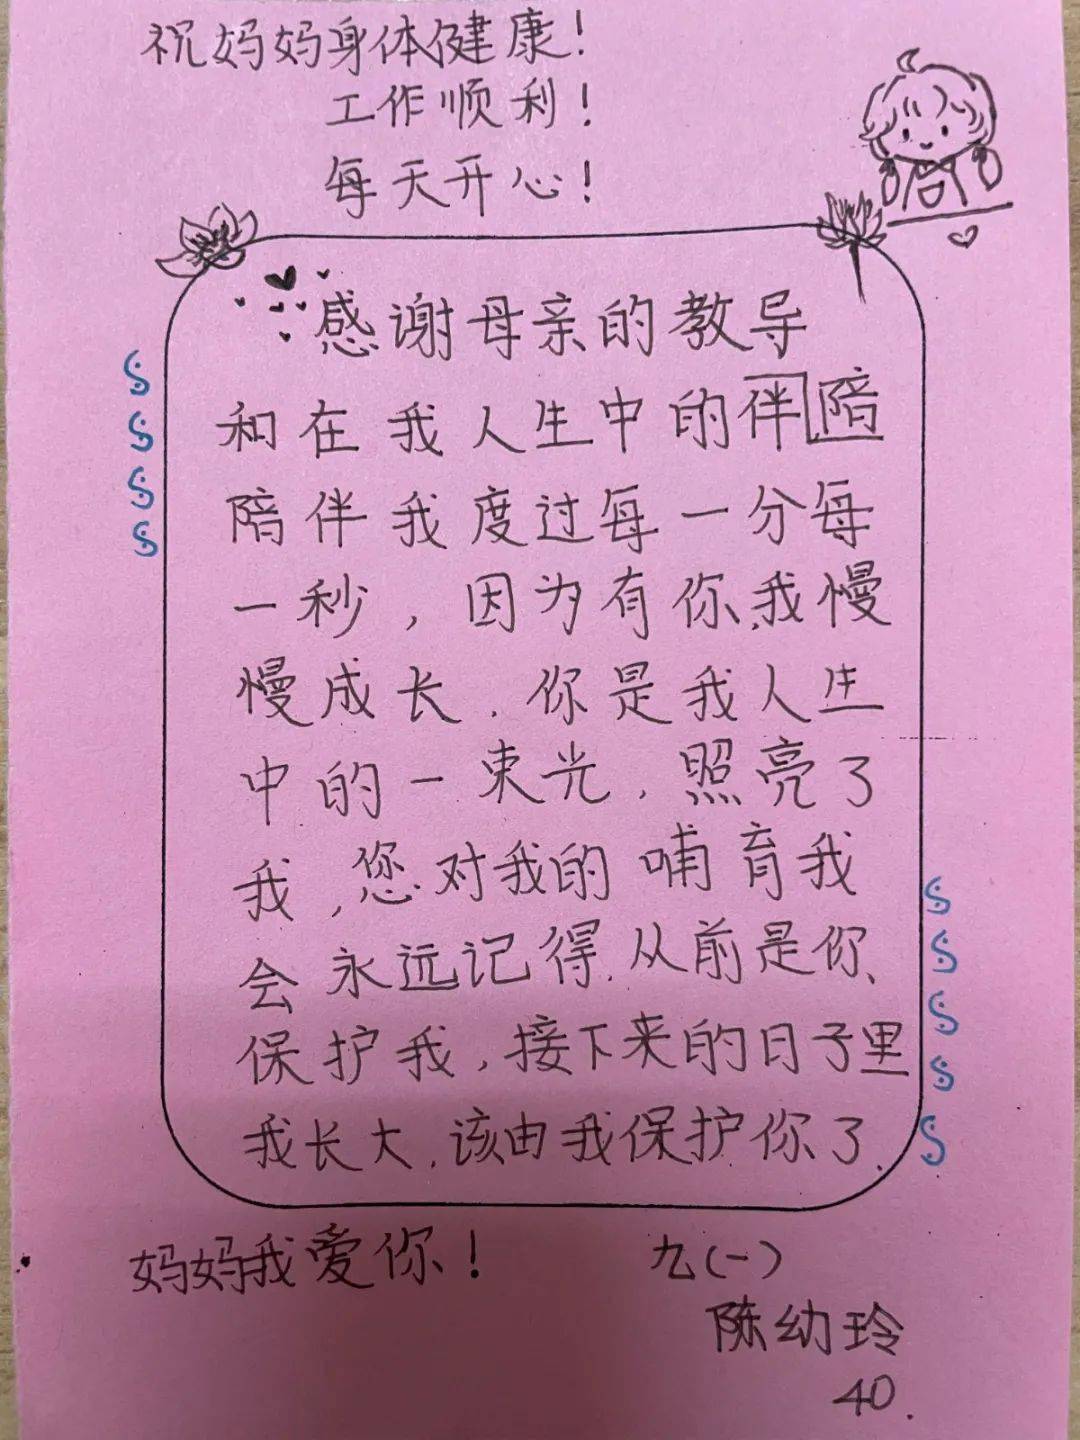 祝妈妈身体健康！
工作顺利！
每天开心！
感谢母亲的教导
和在我人生中的伴陪
陪伴我度过每一分每
一秒，因为有你.我慢
慢成长.你是我人生
中的一束光.照亮了
我，您对我的哺育我
会永远记得.从前是你
保护我，接下来的日子里
我长大.该由我保护你了.
妈妈我爱你！
九(一)
陈幼玲
40.